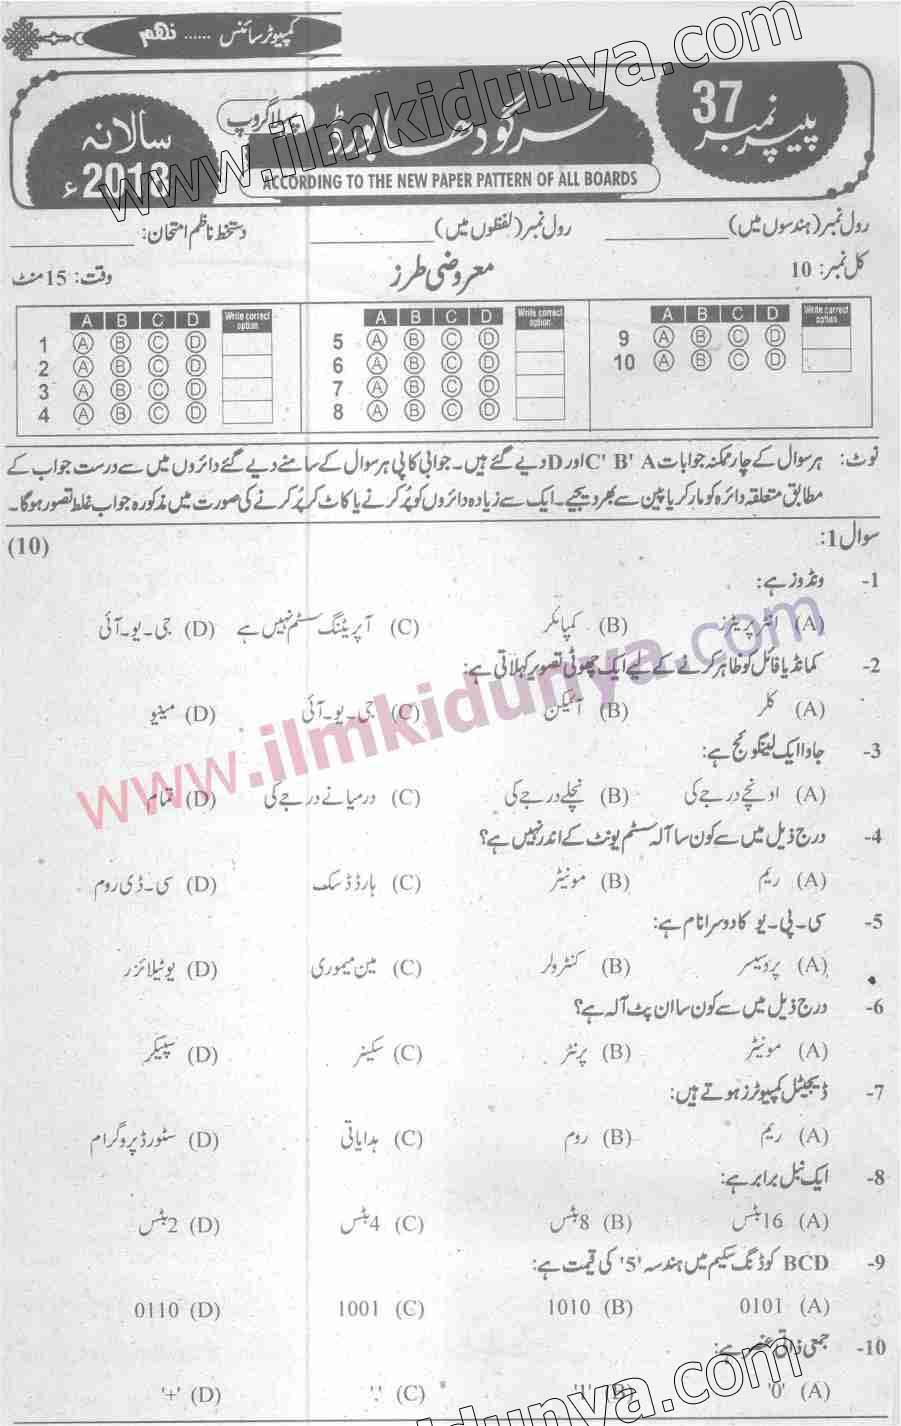 کمپیوٹر سائنس ...... نہم
پیپر نمبر 37
سرگودھا بورڈ
پہلا گروپ
سالانہ 2013ء
ACCORDING TO THE NEW PAPER PATTERN OF ALL BOARDS
www.ilmkidunya.com
رول نمبر (ہندسوں میں) ____________ رول نمبر (لفظوں میں) ____________ دستخط ناظم امتحان: ____________
کل نمبر: 10 معروضی طرز وقت: 15 منٹ
A B C D Write correct option
1 A B C D
2 A B C D
3 A B C D
4 A B C D
A B C D Write correct option
5 A B C D
6 A B C D
7 A B C D
8 A B C D
A B C D Write correct option
9 A B C D
10 A B C D
نوٹ: ہر سوال کے چار ممکنہ جوابات A ,B ,C اور D دیے گئے ہیں۔ جوابی کاپی پر ہر سوال کے سامنے دیے گئے دائروں میں سے درست جواب کے
مطابق متعلقہ دائرہ کو مارکر یا پین سے بھر دیجیے۔ ایک سے زیادہ دائروں کو پُر کرنے یا کاٹ کر پُر کرنے کی صورت میں مذکورہ جواب غلط تصور ہوگا۔
سوال 1: (10)
1- ونڈوز ہے:
(A) انٹرپریٹر (B) کمپائلر (C) آپریٹنگ سسٹم نہیں ہے (D) جی۔یو۔آئی
2- کمانڈ یا فائل کو ظاہر کرنے کے لیے ایک چھوٹی تصویر کہلاتی ہے:
(A) کلر (B) آئیکن (C) جی۔یو۔آئی (D) مینیو
www.ilmkidunya.com
3- جاوا ایک لینگوئج ہے:
(A) اونچے درجے کی (B) نچلے درجے کی (C) درمیانے درجے کی (D) تمام
4- درج ذیل میں سے کون سا آلہ سسٹم یونٹ کے اندر نہیں ہے؟
(A) ریم (B) مونیٹر (C) ہارڈ ڈسک (D) سی۔ڈی روم
5- سی۔پی۔یو کا دوسرا نام ہے:
(A) پروسیسر (B) کنٹرولر (C) مین میموری (D) یوٹیلائزر
6- درج ذیل میں سے کون سا ان پٹ آلہ ہے؟
(A) مونیٹر (B) پرنٹر (C) سکینر (D) سپیکر
7- ڈیجیٹل کمپیوٹرز ہوتے ہیں:
(A) ریم (B) روم (C) ہدایاتی (D) سٹورڈ پروگرام
8- ایک نبل برابر ہے:
(A) 16 بٹس (B) 8 بٹس (C) 4 بٹس (D) 2 بٹس
9- BCD کوڈنگ سکیم میں ہندسہ '5' کی قیمت ہے:
(A) 0101 (B) 1010 (C) 1001 (D) 0110
10- جمعی ذاتی عنصر ہے:
(A) '0' (B) '1' (C) '.' (D) '+'
www.ilmkidunya.com